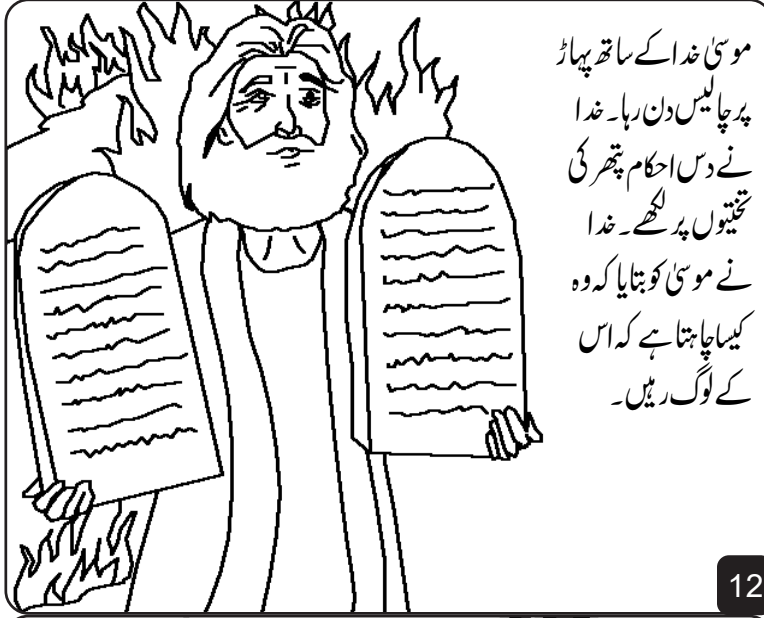 موسیٰ خدا کے ساتھ پہاڑ
پر چالیس دن رہا۔ خدا
نے دس احکام پتھر کی
تختیوں پر لکھے۔ خدا
نے موسیٰ کو بتایا کہ وہ
کیسا چاہتا ہے کہ اس
کے لوگ رہیں۔
12